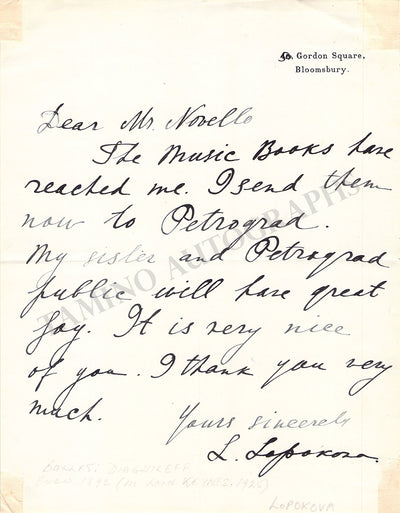 50. Gordon Square,
Bloomsbury.
Dear Mr. Novello
The Music Books have
reached me. I send them
now to Petrograd.
My sister and Petrograd
public will have great
joy. It is very nice
of you. I thank you very
much.
Yours sincerely
L. Lopokova.
TAMINO AUTOGRAPHS
BALLET: DIAGHILEFF
(m. LORD KEYNES. 1925)
LOPOKOVA